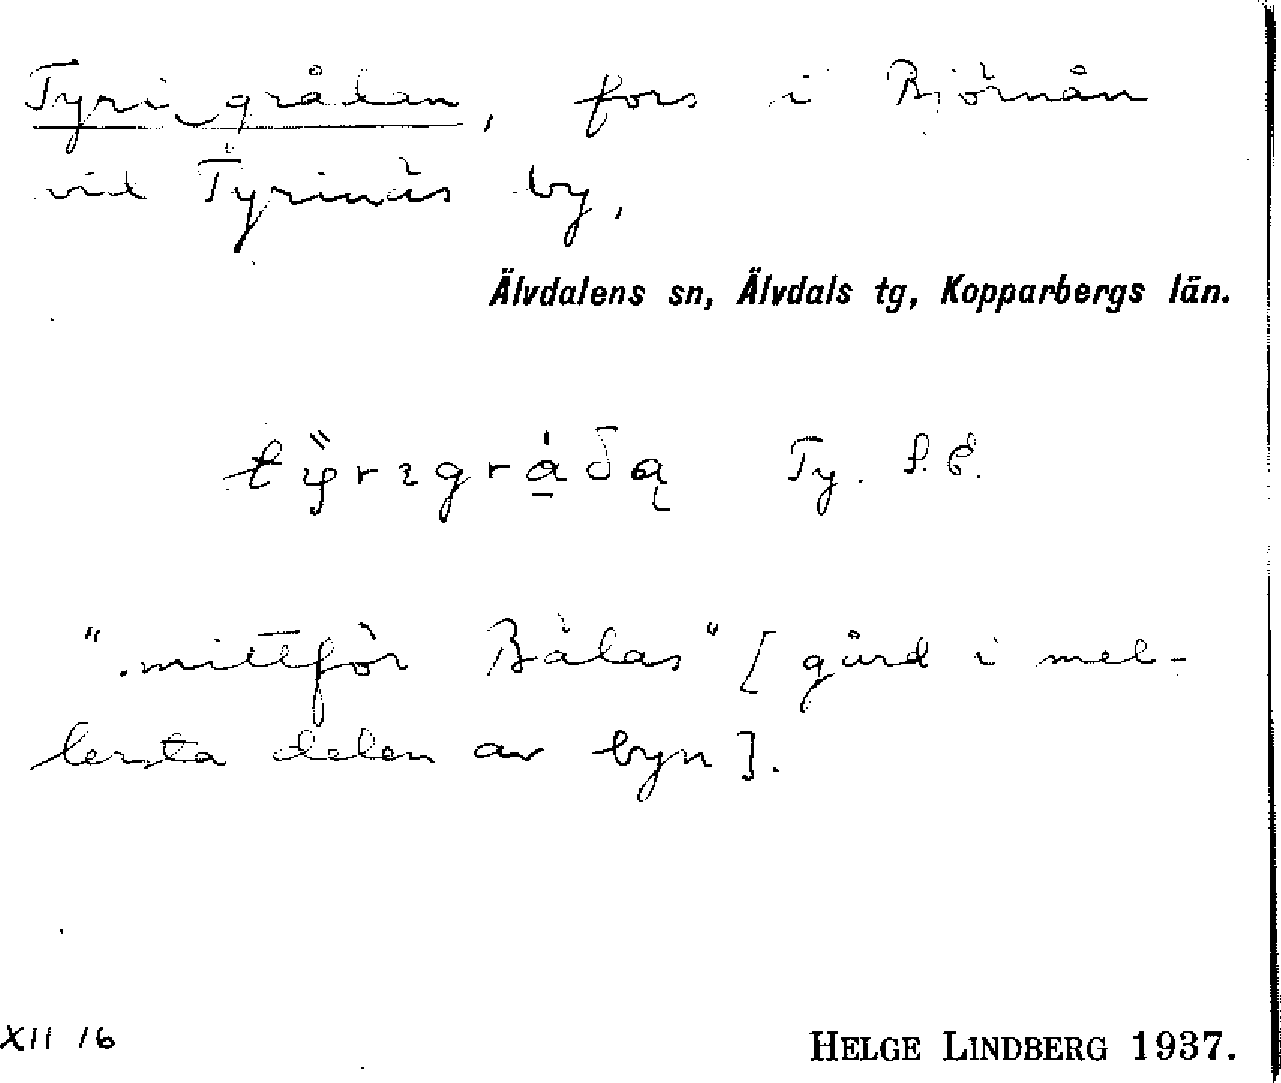 Tyri_grådan, fors i Björnån
vid Tyrinäs by,
Älvdalens sn, Älvdals tg, Kopparbergs län.
Ty. P.E.
"mittför Bälas" [gård i mel-
lersta delen av byn].
XII 16
HELGE LINDBERG 1937.